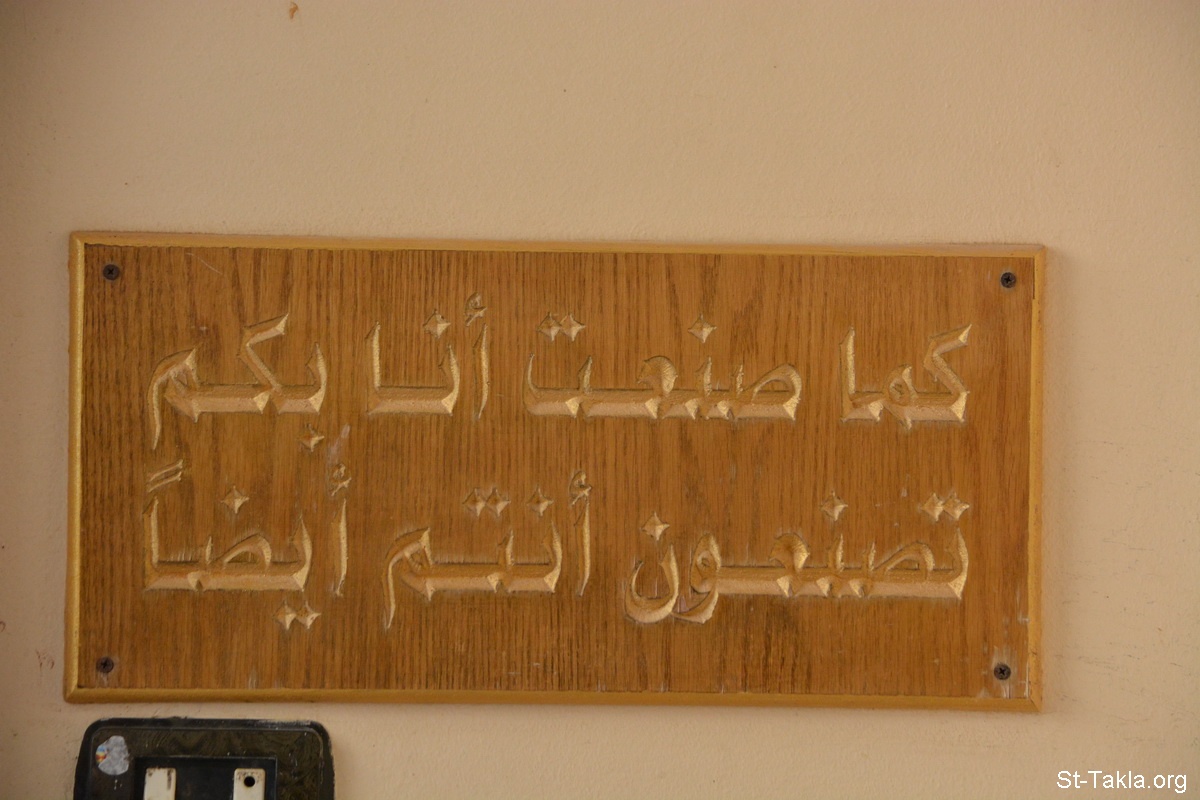 كما صنعت أنا بكم
تصنعون أنتم أيضاً
St-Takla.org